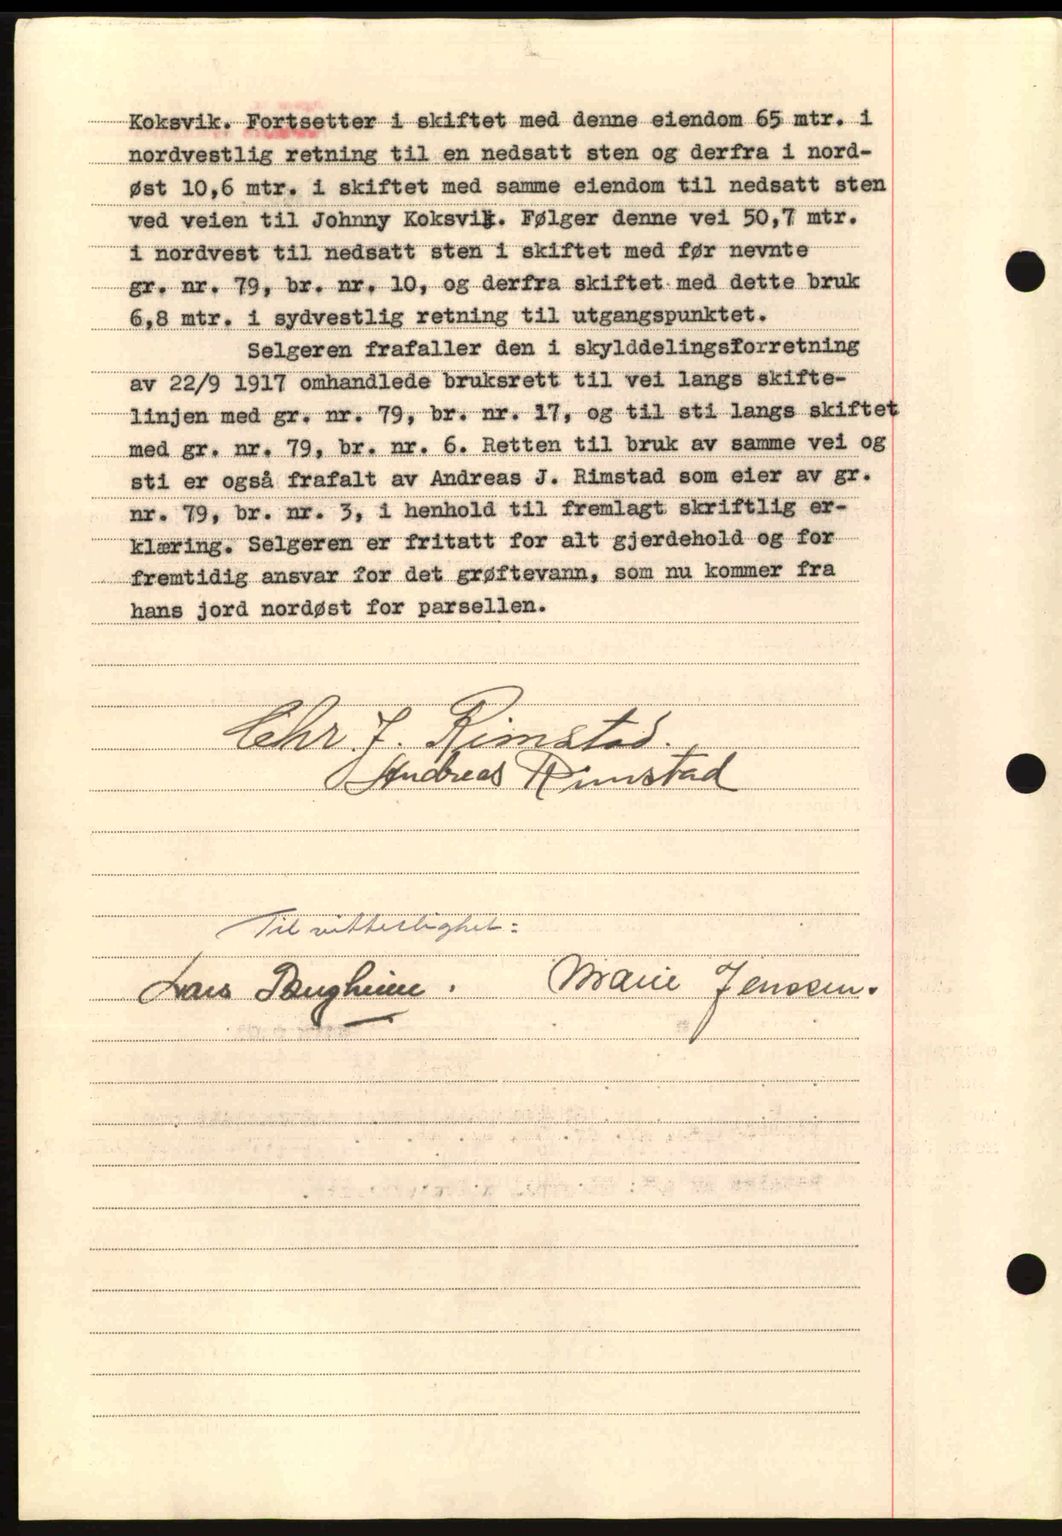 Koksvik. Fortsetter i skiftet med denne eiendom 65 mtr. i
nordvestlig retning til en nedsatt sten og derfra i nord-
øst 10,6 mtr. i skiftet med samme eiendom til nedsatt sten
ved veien til Johnny Koksvik. Følger denne vei 50,7 mtr.
i nordvest til nedsatt sten i skiftet med før nevnte
gr. nr. 79, br. nr. 10, og derfra skiftet med dette bruk
6,8 mtr. i sydvestlig retning til utgangspunktet.
Selgeren frafaller den i skylddelingsforretning
av 22/9 1917 omhandlede bruksrett til vei langs skifte-
linjen med gr. nr. 79, br. nr. 17, og til sti langs skiftet
med gr. nr. 79, br. nr. 6. Retten til bruk av samme vei og
sti er også frafalt av Andreas J. Rimstad som eier av gr.
nr. 79, br. nr. 3, i henhold til fremlagt skriftlig er-
klæring. Selgeren er fritatt for alt gjerdehold og for
fremtidig ansvar for det grøftevann, som nu kommer fra
hans jord nordøst for parsellen.
Chr. J. Rimstad.
Andreas Rimstad
Til vitterlighet:
Lars
Marie Jenssen.